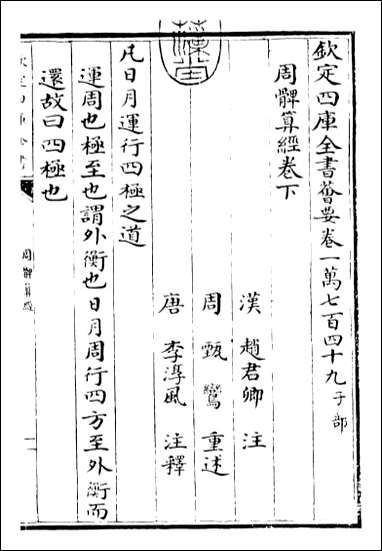 欽定四庫全書薈要卷一萬七百四十九子部
周髀算經卷下
漢 趙君卿 注
周 甄鸞 重述
唐 李淳風 注釋
凡日月運行四極之道
運周也極至也謂外衡也日月周行四方至外衡而
還故曰四極也
周髀算經